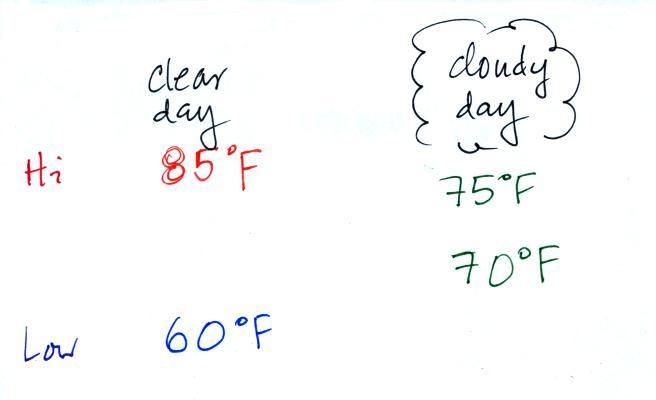 clear
day
cloudy
day
Hi 85°F 75°F
70°F
Low 60°F